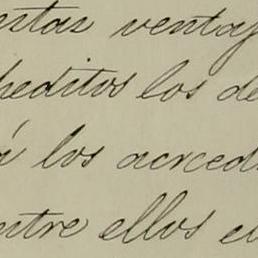 estas ventaj
heditos los de
á los acrced
entre ellos el